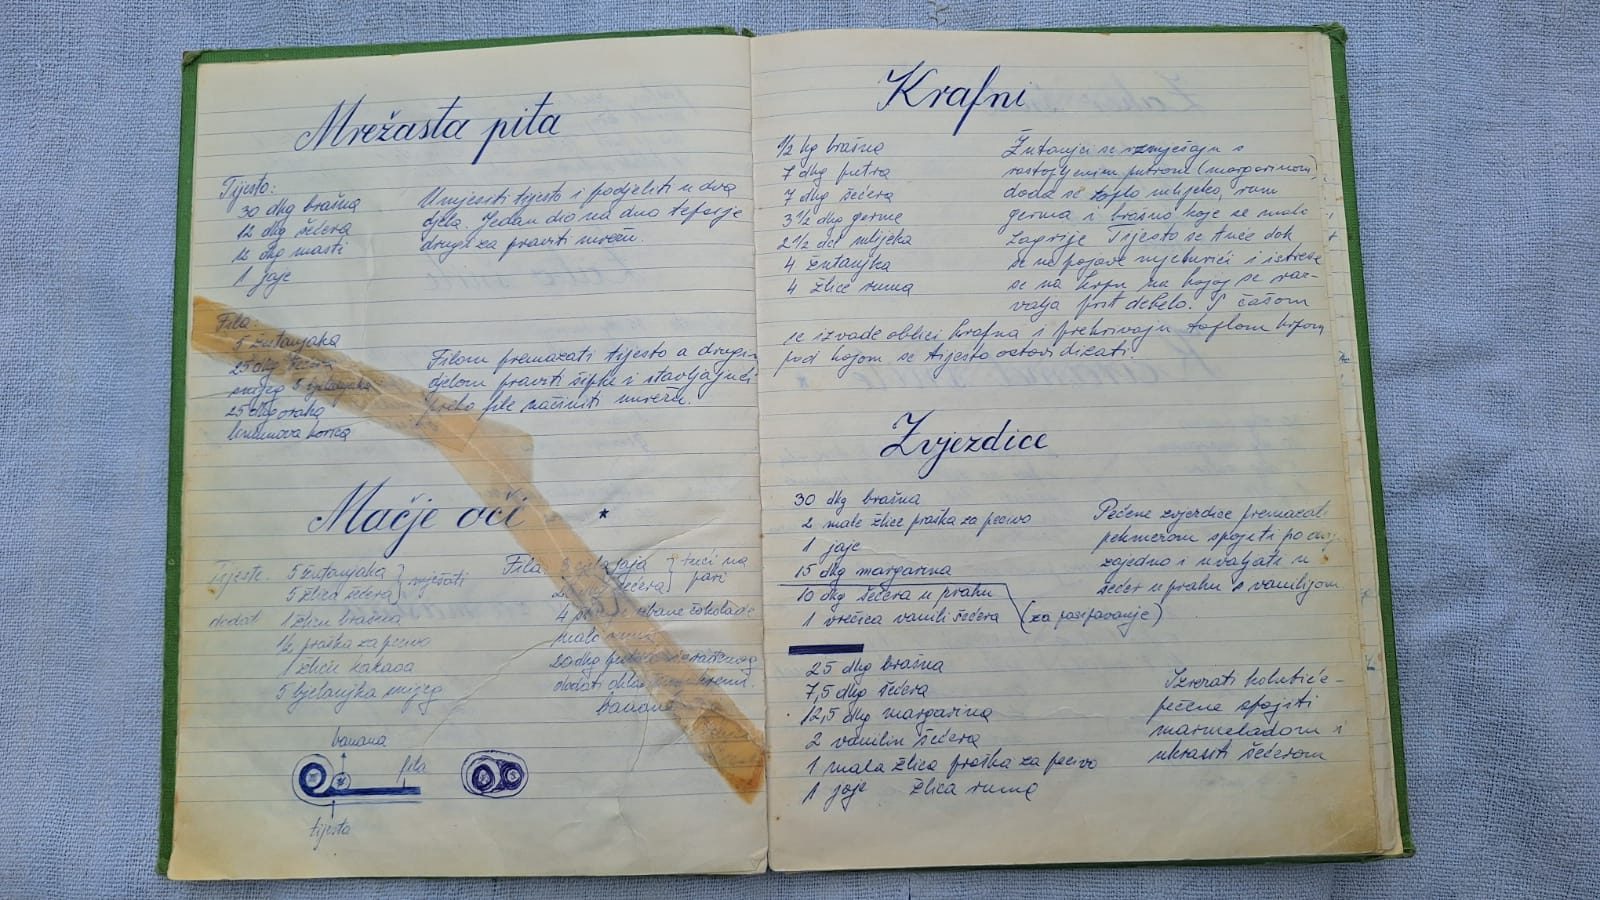 Mrežasta pita
Tijesto:
30 dkg brašna
12 dkg šećera
12 dkg masti
1 jaje
Umjesiti tijesto i podjeliti u dva
djela. Jedan dio na dno tepsije
drugi za praviti mrežu.
Fila:
5 žutanjaka
25 dkg šećera
snijeg 5 bjelanjaka
25 dkg oraha
limunova korica
Filom premazati tijesto a drugim
djelom praviti šipke i stavljajući
preko file načiniti mrežu.
Mačje oči *
Tijesto: 5 žutanjaka } mješati
5 žlica šećera
dodat 1 žlicu brašna
1/2 praška za pecivo
1 žlicu kakaoa
5 bjelanjka snijeg
Fila: 3 cijela jaja } tući na
dkg šećera pari
4 ribane čokolade
malo ruma
20 dkg putra izrađenog
dodati kremi.
banane
banana
fila
tijesto
Krafni
1/2 kg brašna
7 dkg putra
7 dkg šećera
3 1/2 dkg germe
2 1/2 dcl mlijeka
4 žutanjka
4 žlice ruma
Žutanjci se razmješaju s
rastopljenim putrom (margarinom)
doda se toplo mlijeko, rum
germa i brašno koje se malo
zagrije Tijesto se tuče dok
se ne pojave mjehurići i istrese
se na krpu na kojoj se raz-
valja prst debelo. S čašom
se izvade oblici krafna i prekrivaju toplom krpom
pod kojom se tijesto ostavi dizati.
Zvjezdice
30 dkg brašna
2 male žlice praška za pecivo
1 jaje
15 dkg margarina
10 dkg šećera u prahu
1 vrećica vanili šećera (za posipavanje)
Pečene zvjezdice premazati
pekmezom spojiti po dvije
zajedno i uvaljati u
šećer u prahu s vanilijom
25 dkg brašna
7,5 dkg šećera
12,5 dkg margarina
2 vanilin šećera
1 mala žlica praška za pecivo
1 jaje žlica ruma
Izrezati kolutiće -
pečene spojiti
marmeladom i
ukrasiti šećerom